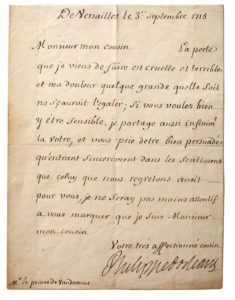 De Versailles le 3e. septembre 1715
Monsieur mon cousin La perte
que je viens de faire est cruelle et terrible
et ma douleur quelque grande qu'elle soit
ne sçauroit l'egaler; si vous voulez bien
y étre sensible, je partage aussi infinim
la votre, et vous prie detre bien persuadé
qu'entrant sincerement dans les Sentimens
que celuy que nous regretons auoit
pour vous, je ne seray pas moins attentif
a vous marquer que je suis Monsieur
mon cousin
Votre tres affectionné cousin
Philippe d'Orleans
Mr. le prince de Vaudemont